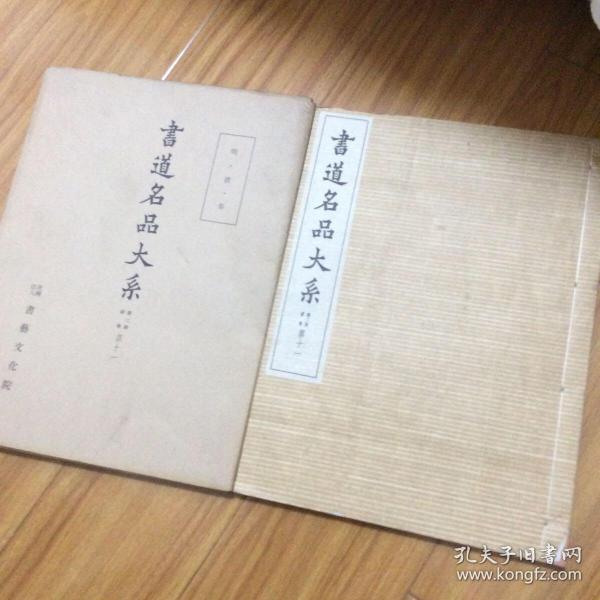 書道名品大系
第十一
書藝文化院
書道名品大系
第十一
孔夫子旧書网
www.kongfz.com